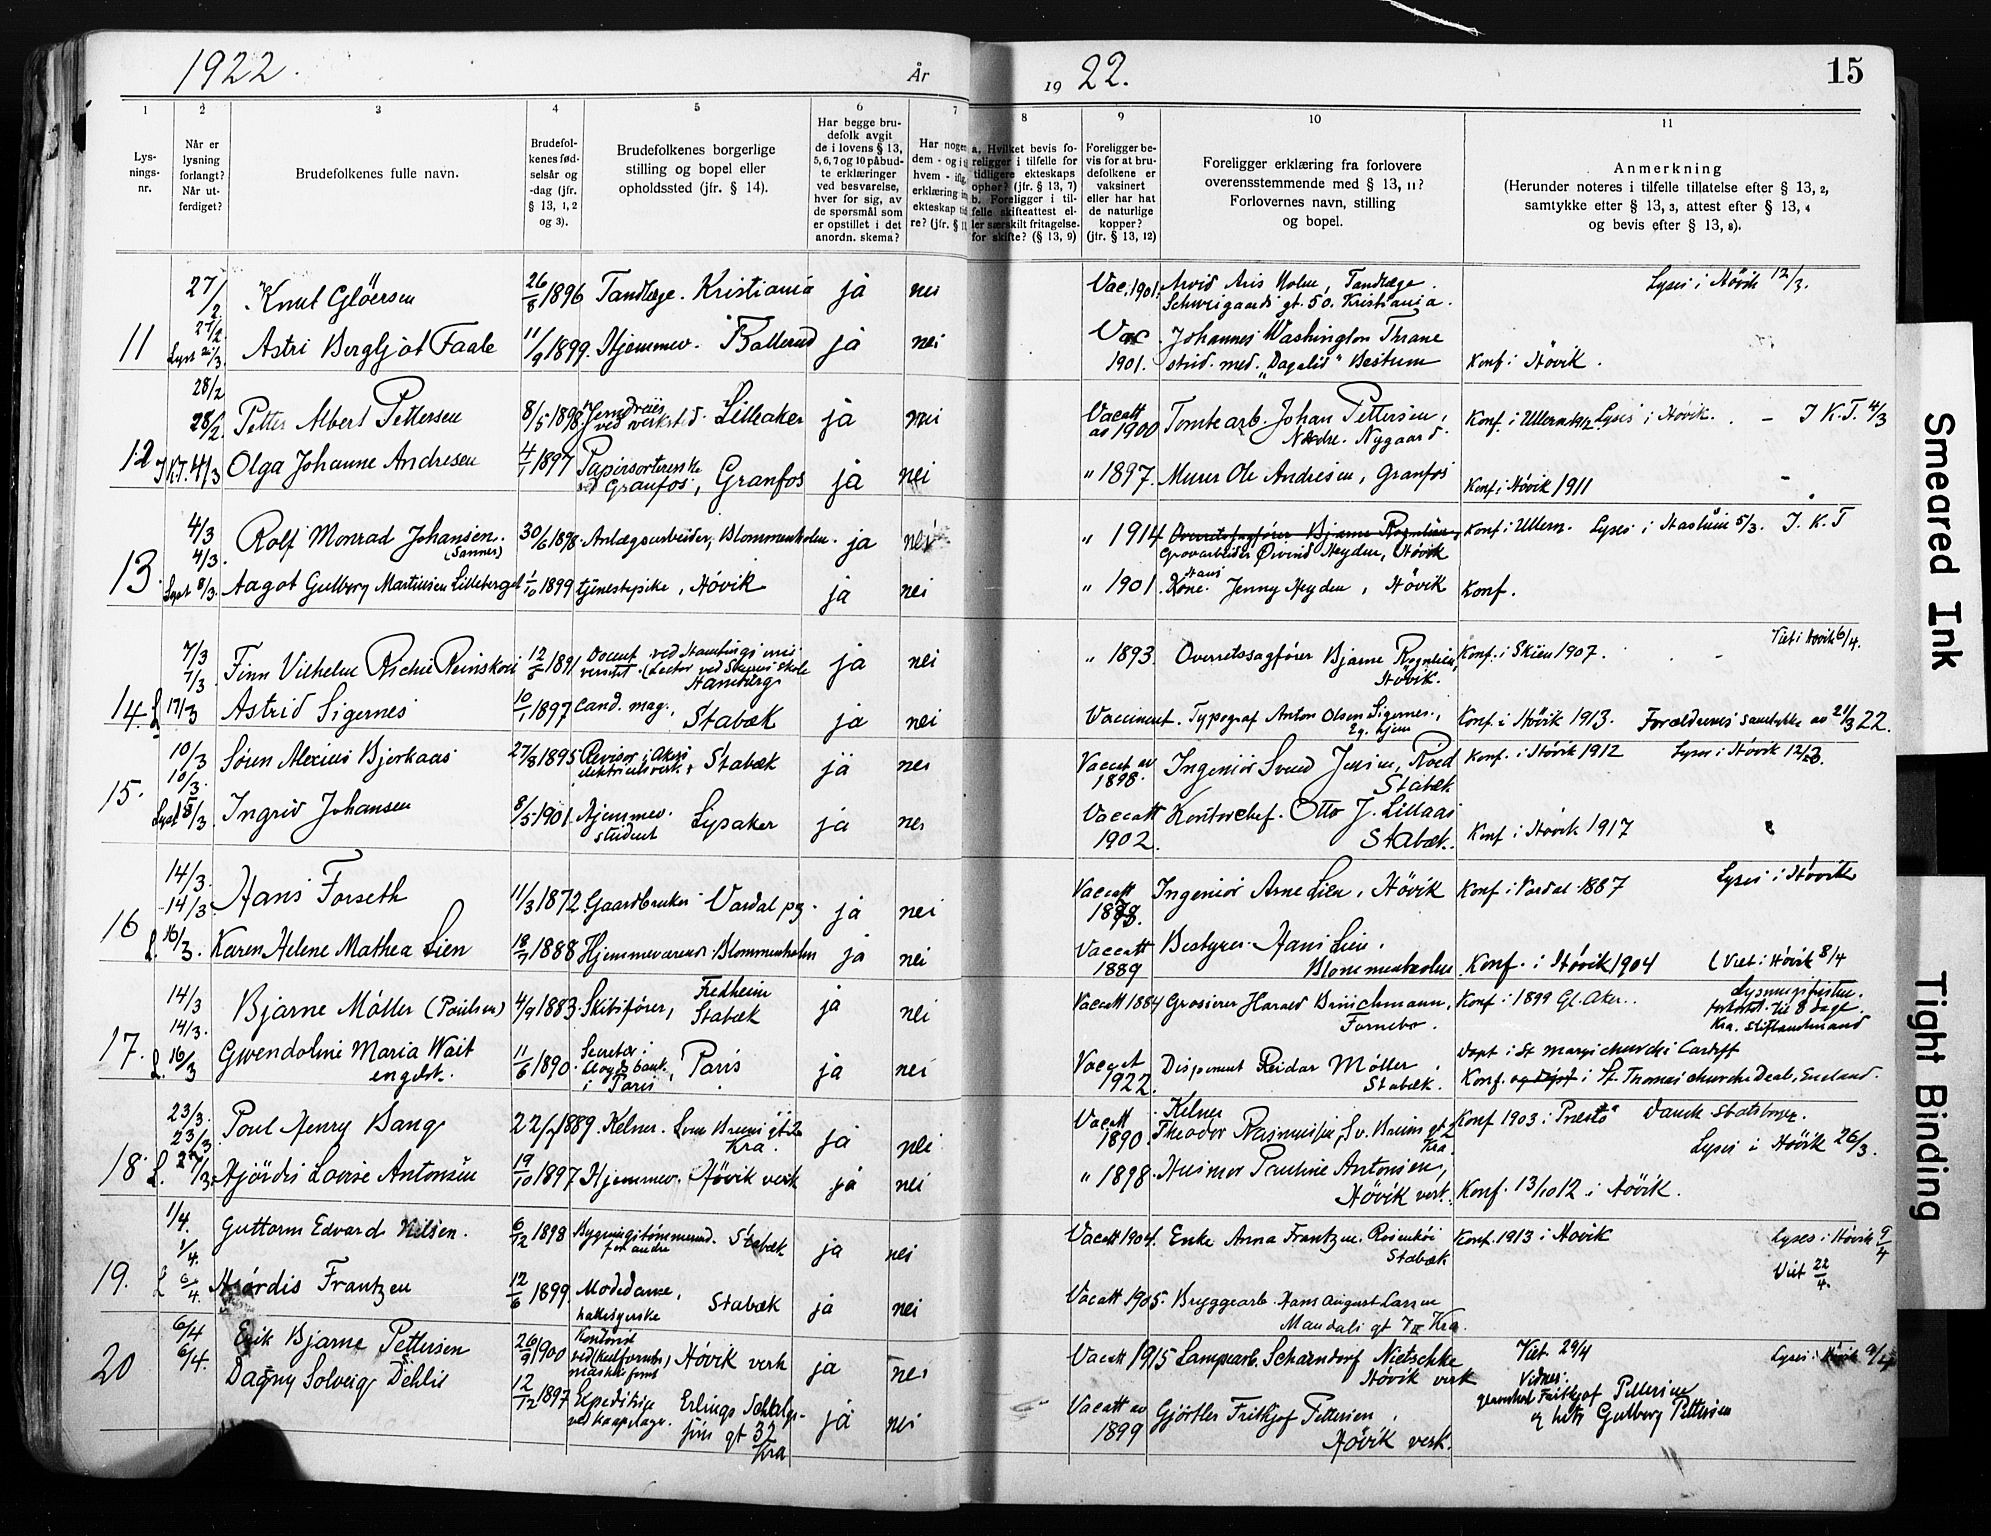 1922.
År
19 22.
15
1 2 3 4 5 6 7 8 9 10 11
Lys-
nings-
nr.
Når er
lysning
forlangt?
Når ut-
ferdiget?
Brudefolkenes fulle navn.
Brudefol-
kenes fød-
selsår og
-dag (jfr.
§ 13, 1, 2
og 3).
Brudefolkenes borgerlige
stilling og bopel eller
opholdssted (jfr. § 14).
Har begge bru-
defolk avgit
de i lovens § 13,
5, 6, 7 og 10 påbud-
te erklæringer
ved besvarelse,
hver for sig, av
de spørsmål som
er opstillet i det
anordn. skema?
Har nogen
dem - og i
hvem - iflg.
erklæring in
ekteskap tid
re? (jfr. § 1
a. Hvilket bevis fo-
religger i tilfelle for
tidligere ekteskaps
ophør? (jfr. § 13, 7)
b. Foreligger i til-
felle skifteattest el-
ler særskilt fritagelse
for skifte? (§ 13, 9)
Foreligger be-
vis for at bru-
defolkene er
vaksinert
eller har hat
de naturlige
kopper?
(jfr. § 13, 12)
Foreligger erklæring fra forlovere
overensstemmende med § 13, 11?
Forlovernes navn, stilling
og bopel.
Anmerkning
(Herunder noteres i tilfelle tillatelse efter § 13, 2,
samtykke efter § 13, 3, attest efter § 13, 4
og bevis efter § 13, 8).
27/2 Knut Glöersen 26/8 1896 Tandlæge. Kristiania ja nei Vac. 1901. Arvid Aris Holm, Tandlæge.
Schweigaards gt. 50. Kristiania.
Lyses i Hövik 12/3.
11 27/2 Astri Bergljot Faale 11/9 1899. Hjemmev. Ballerud ja nei Vac 1901. Johannes Washington Thrane
stud. med. "Dagalid" Bestum Konf. i Hövik.
28/2
28/2. Petter Albert Pettersen 8/5 1898 Jerndreier
ved verksted. Lilleaker ja nei Vacatt
av 1900 Tomtearb. Johan Pettersen,
Nedre. Nygaard. Konf. i Ullern Lyses i Hövik. - I K.T. 4/3
12 I K.T. 4/3 Olga Johanne Andresen 4/1 1897 Papirsortererske
ved Granfos, Granfos ja nei " 1897. Murer Ole Andresen, Granfos Konf. i Hövik 1911 -
4/3
4/3. Rolf Monrad Johansen.
(Sanner) 30/6 1898. Anlægsarbeider, Blommenholm. ja nei " 1914 Overretssagfører Bjarne Rognlien,
Grovarbeider Øivind Heyden, Hövik Konf. i Ullern. Lyses i Haslum 5/3. I. K. T
13. Lyst 8/3. Aagot Gulborg Martinsen Lilleberget 1/10 1899 tjenestepike, Hövik ja nei " 1901. Hans
Kone. Jenny Heyden, Hövik Konf.
7/3
7/3. Finn Vilhelm Reinskou 12/8 1891 Docent ved Hamburgs uni-
versitet. (Lector ved Skiens skole
Hamburg ja nei " 1893. Overretssagfører Bjarne Rognlien,
Hövik. Konf. i Skien 1907. Viet i Hövik 6/4.
14. L 17/3 Astrid Sigernes 10/1 1897 Cand. mag., Stabæk ja nei Vaccinert. Typograf Anton Olsen Sigernes,
Eg. hjem Konf. i Hövik 1913. Forældrenes samtykke av 21/3 22.
10/3
10/3. Sören Alexius Bjerkaas 27/8 1895 Revisor i Akers
elektricitetsverk, Stabæk ja nei Vaccat av
1898. Ingeniör Svend Jensen, Roed
Stabæk Konf. i Hövik 1912 Lyses i Hövik 12/3.
15. Lyst 15/3. Ingrid Johansen 8/5 1901. Hjemmev.
student Lysaker ja nei Vaccatt
1902. Kontorchef. Otto J. Lillaas
Stabæk. Konf. i Hövik 1917
14/3.
14/3. Hans Forseth 11/3 1872. Gaardbruker Vardal pg. ja nei Vaccatt Ingeniör Arne Lien, Hövik Konf. i Vardal 1887 Lyses i Hövik
16 L. 16/3. Karen Helene Mathea Lien 18/7 1888 Hjemmeværende Blommenholm ja nei Vaccatt
1889 Bestyrer. Hans Lien.
Blommenholm Konf. i Hövik 1904 (Viet i Hövik 8/4
14/3
14/3. Bjarne Möller (Poulsen) 4/9 1883. Skibsfører, Fredheim
Stabæk ja nei Vaccatt 1884 Grosserer Harald Brinchmann,
Fornebo. Konf. i 1899 Gl. Aker. Lysningsfristen.
forkortet til 8 dage.
Kra. stiftamtmand
17. L. 16/3 Gwendoline Maria Wait
engelsk. 11/6 1890. Secretær i
Lloyds bank
i Paris, Paris ja nei Vaccat
1922. Disponent Reidar Möller
Stabæk. Døpt i St Marys church i Cardiff
Konf. i St. Thomas church Deal, England.
23/3.
23/3 Poul Henry Bang 22/7 1889. Kelner. Sven Bruns gt. 2
Kra. ja nei Vacatt
1890 Kelner
Theodor Rasmussen, Sv. Bruns gt. 2
Kra. Konf. 1903 i Præstö Dansk Statsborger.
Lyses i Hövik 26/3.
18. L. 27/3. Hjördis Lovise Antonsen 19/10 1897 Hjemmev. Hövik verk ja nei " 1898. Husmor Pauline Antonsen,
Hövik verk. Konf. 13/10 12 i Hövik.
1/4.
1/4. Guttorm Edvard Nilsen. 6/12 1898 Bygningstømmermand.
for andre Stabæk ja nei Vacatt 1904. Enke Anna Frantzen. Rosenhöi
Stabæk Konf. 1913 i Hövik Lyses i Hövik 9/4
Viet 22/4.
19. L 6/4. Hjördis Frantzen 12/6 1899. Modedame,
hattesyerske Stabæk ja nei Vacatt 1905. Bryggearb. Hans August Larsen
Mandals gt 7 II Kra.
6/4
6/4. Erik Bjarne Pettersen 26/9 1900 Kontorist
Hövik verk ja nei Vacatt 1915 Lampearb. Scharndorf Nietschke
Hövik verk Viet 29/4 Lyses i Hövik 9/4
20 Dagny Solveig Dehlie 12/12 1897 Expeditrice
Erlings
gt 32
Kra ja nei Vacatt av
1899 Gjørtler Fritkjof Pettersen,
Hövik verk. Vidner:
Fritkjof Pettersen
og Gulborg Pettersen
Smeared Ink
Tight Binding